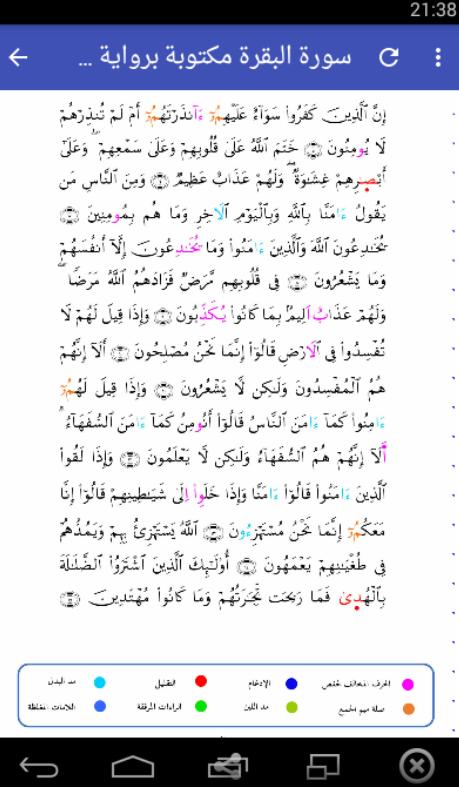 21:38
سورة البقرة مكتوبة برواية ...
إِنَّ ٱلَّذِينَ كَفَرُواْ سَوَآءٌ عَلَيْهِمُۥٓ ءَآنذَرْتَهُمُۥٓ أَمْ لَمْ تُنذِرْهُمْ
لَا يُومِنُونَ خَتَمَ ٱللَّهُ عَلَىٰ قُلُوبِهِمْ وَعَلَىٰ سَمْعِهِمْ وَعَلَىٰ
أَبْصَٰرِهِمْ غِشَٰوَةٌ وَلَهُمْ عَذَابٌ عَظِيمٌ وَمِنَ ٱلنَّاسِ مَن
يَقُولُ ءَامَنَّا بِٱللَّهِ وَبِٱلْيَوْمِ ٱلَاخِرِ وَمَا هُم بِمُومِنِينَ
يُخَٰدِعُونَ ٱللَّهَ وَٱلَّذِينَ ءَامَنُواْ وَمَا يُخَٰدِعُونَ إِلَّآ أَنفُسَهُمْ
وَمَا يَشْعُرُونَ فِى قُلُوبِهِم مَّرَضٌ فَزَادَهُمُ ٱللَّهُ مَرَضًا
وَلَهُمْ عَذَابٌ اَلِيمٌۢ بِمَا كَانُواْ يُكَذِّبُونَ وَإِذَا قِيلَ لَهُمْ لَا
تُفْسِدُواْ فِى ٱلَارْضِ قَالُوٓاْ إِنَّمَا نَحْنُ مُصْلِحُونَ أَلَآ إِنَّهُمْ
هُمُ ٱلْمُفْسِدُونَ وَلَٰكِن لَّا يَشْعُرُونَ وَإِذَا قِيلَ لَهُمُۥٓ
ءَامِنُواْ كَمَآ ءَامَنَ ٱلنَّاسُ قَالُوٓاْ أَنُومِنُ كَمَآ ءَامَنَ ٱلسُّفَهَآءُ
أَلَآ إِنَّهُمْ هُمُ ٱلسُّفَهَآءُ وَلَٰكِن لَّا يَعْلَمُونَ وَإِذَا لَقُواْ
ٱلَّذِينَ ءَامَنُواْ قَالُوٓاْ ءَامَنَّا وَإِذَا خَلَوِاْ اِلَىٰ شَيَٰطِينِهِمْ قَالُوٓاْ إِنَّا
مَعَكُمُۥٓ إِنَّمَا نَحْنُ مُسْتَهْزِءُونَ ٱللَّهُ يَسْتَهْزِئُ بِهِمْ وَيَمُدُّهُمْ
فِى طُغْيَٰنِهِمْ يَعْمَهُونَ أُوْلَٰٓئِكَ ٱلَّذِينَ ٱشْتَرَوُاْ ٱلضَّلَٰلَةَ
بِٱلْهُدِىٰ فَمَا رَبِحَت تِّجَٰرَتُهُمْ وَمَا كَانُواْ مُهْتَدِينَ
الحرف المخالف لحفص الإدغام التقليل مد البدل
صلة ميم الجمع مد اللين الراءات المرققة اللامات المغلظة